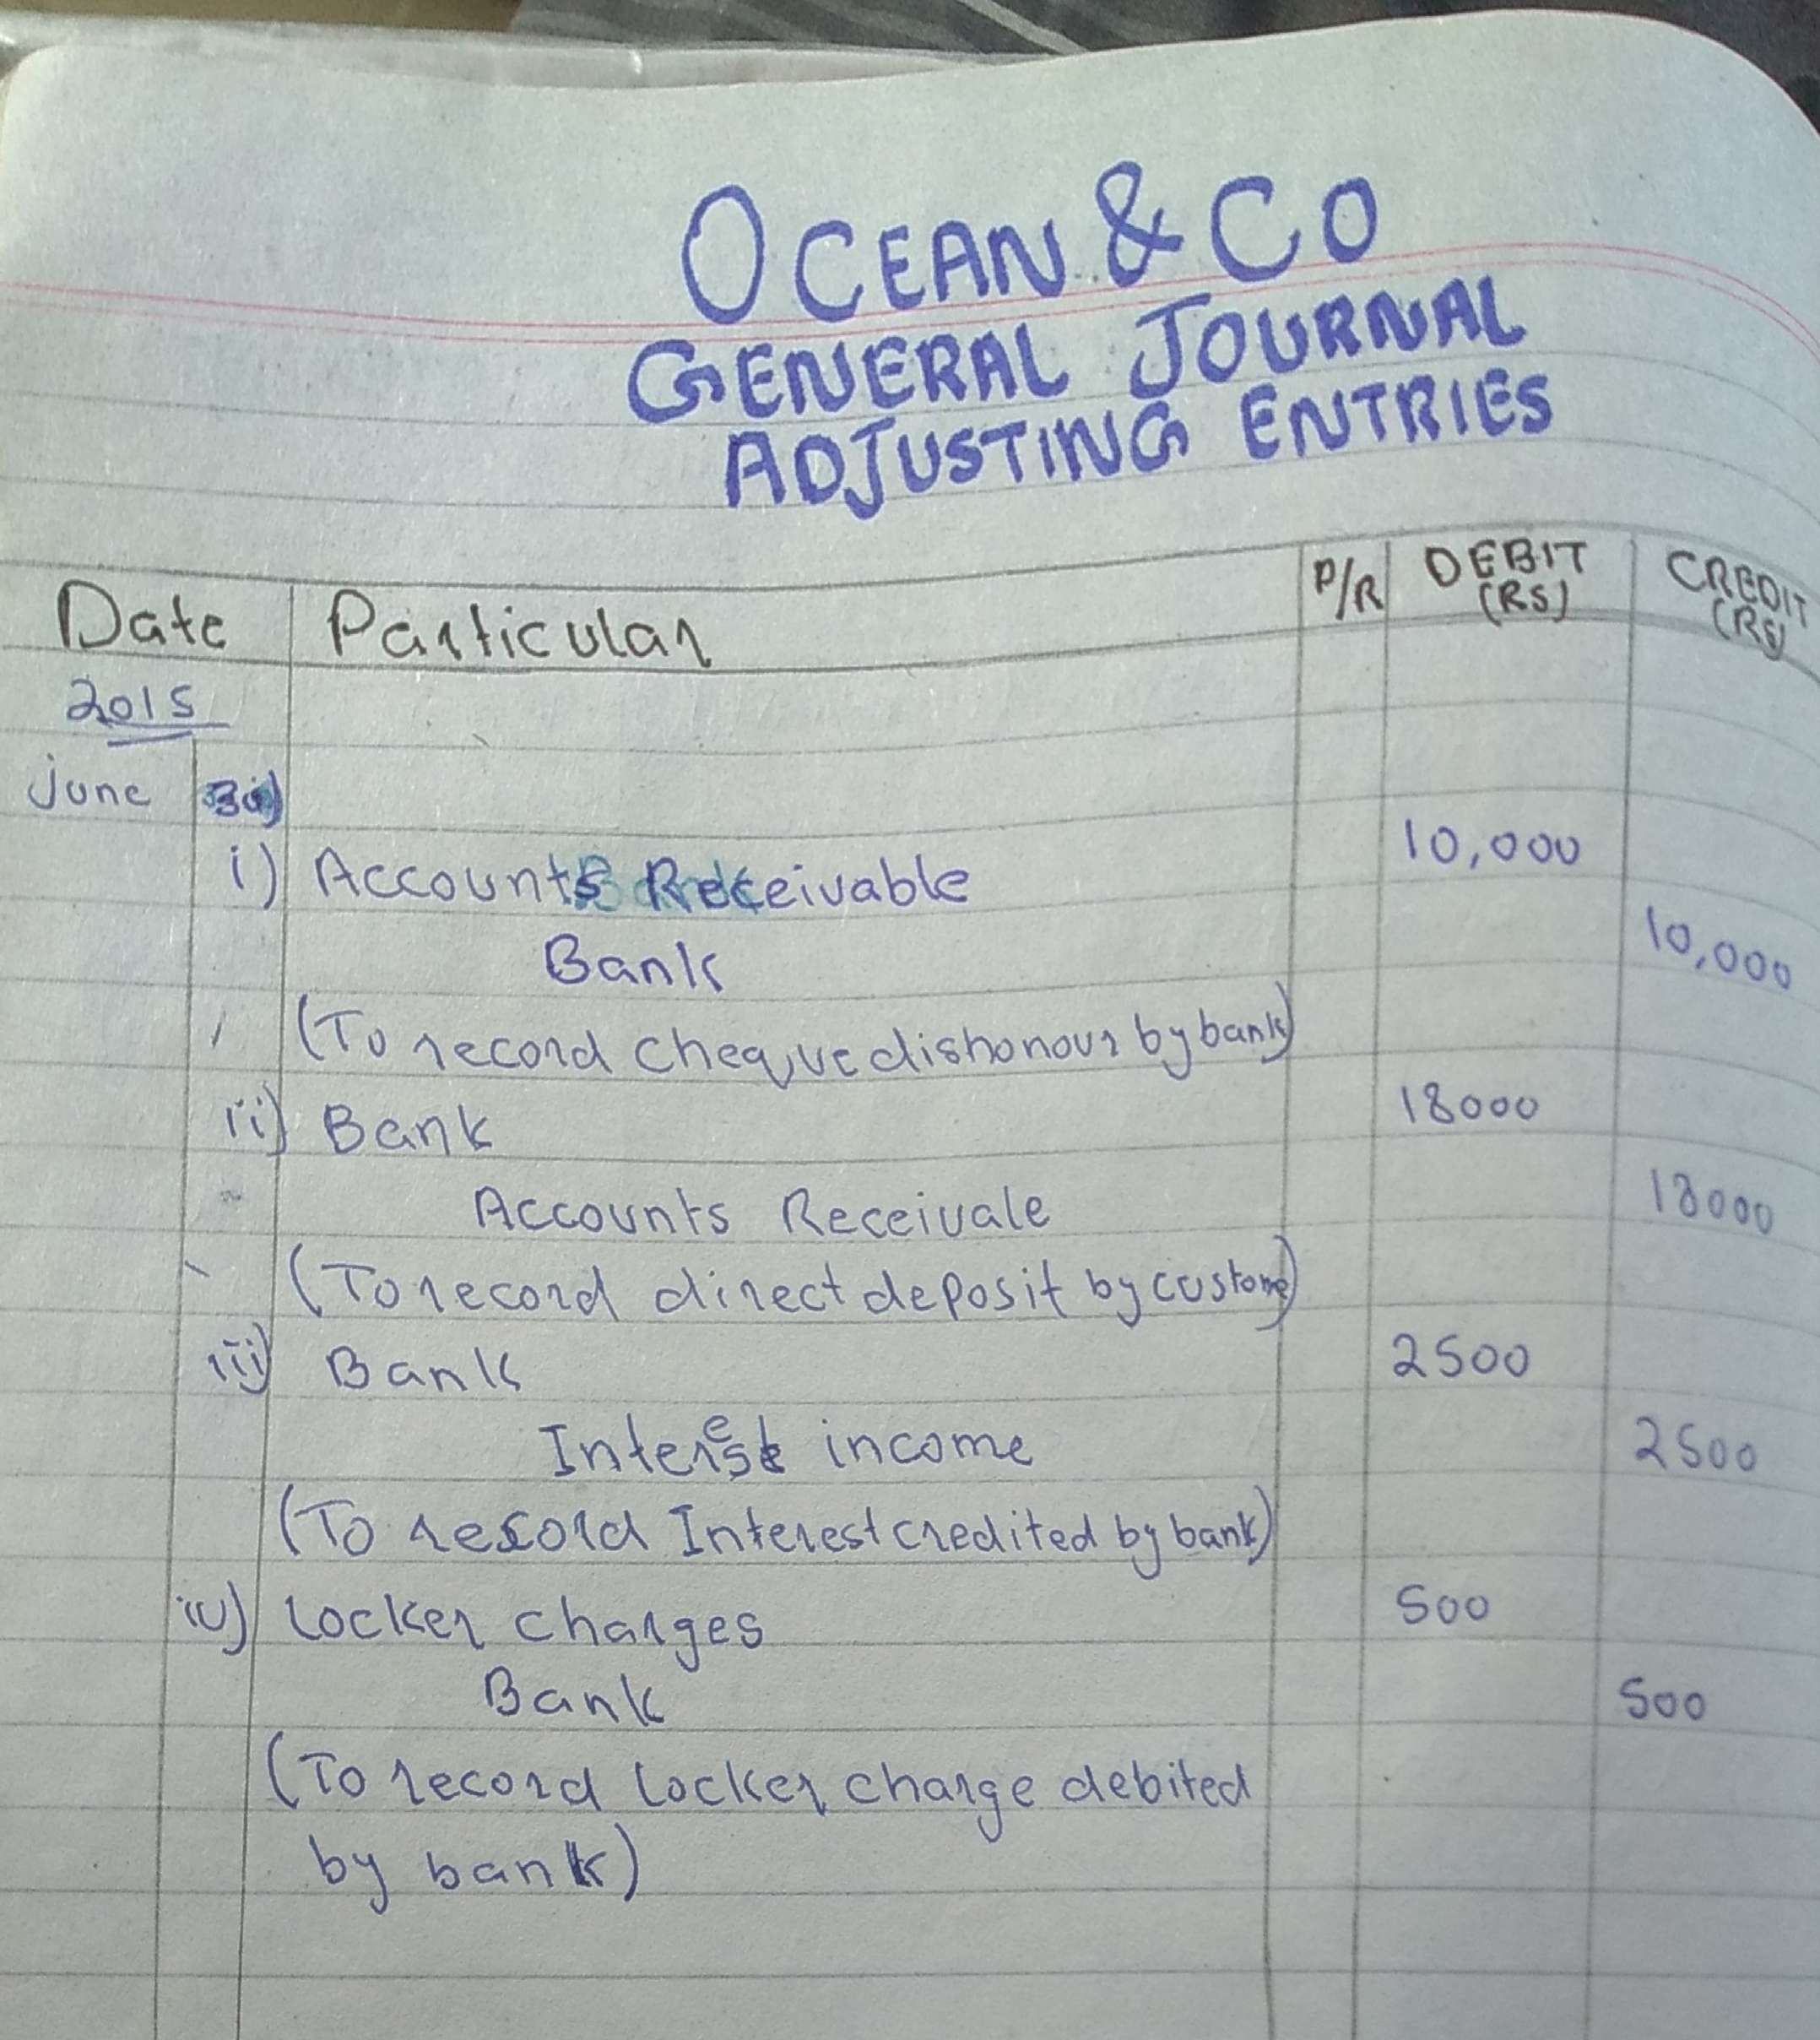 OCEAN & CO
GENERAL JOURNAL
ADJUSTING ENTRIES
Date Particular P/R DEBIT (RS) CREDIT (RS)
2015
june
i) Accounts Receivable 10,000
Bank 10,000
(To record cheque dishonour by bank)
ii) Bank 18000
Accounts Receivale 18000
(To record direct deposit by custome)
iii) Bank 2500
Interest income 2500
(To record Interest credited by bank)
iv) Locker charges 500
Bank 500
(To record Locker charge debited
by bank)